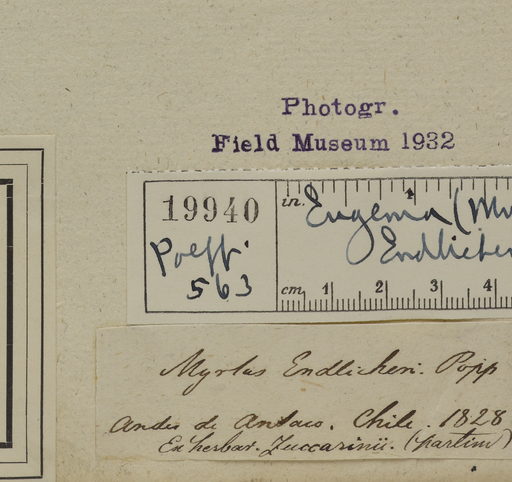 Photogr.
Field Museum 1932
19940
Poepp.
563
in. Eugenia (My
Endlicher
cm 1 2 3 4
Myrtus Endlicheri. Pöpp
Andes de Antuco. Chile. 1828
Ex herbar. Zuccarinii. (partim)